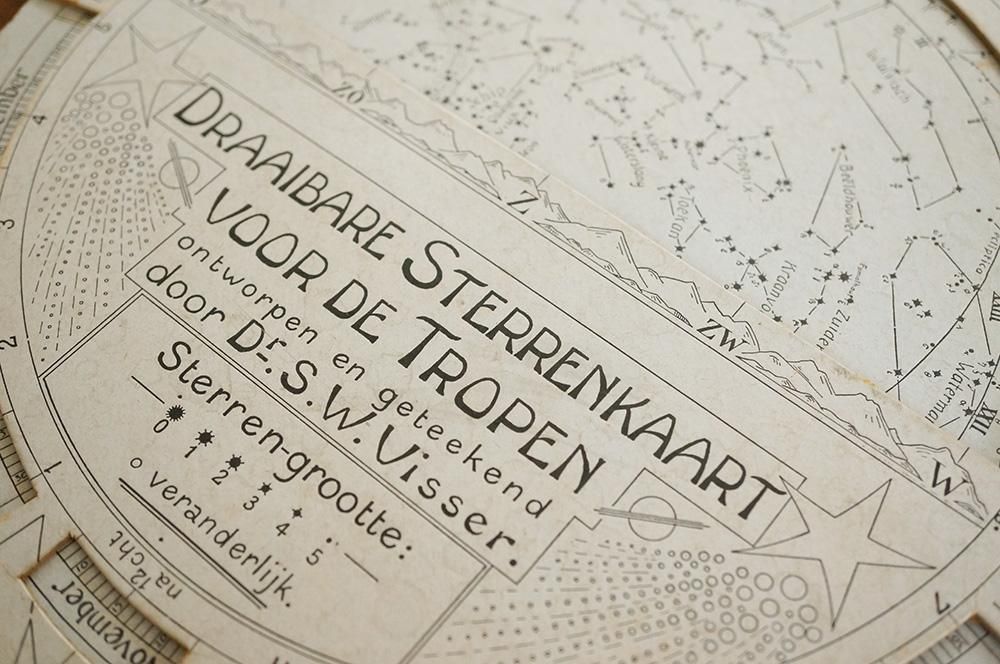 DRAAIBARE STERRENKAART
VOOR DE TROPEN
ontworpen en geteekend
door Dr. S. W. Visser.
Sterren-grootte:
0 1 2 3 4 5
o veranderlijk.
ZO
Z
ZW
W
Walvisch
Phoenix
Beeldhouwer
Toekan
Kleine
Waterslang
Kraanvo
Zuider
Waterma
Ecliptica
III
XXII
5
4
3
2
1
12
na
cht
7
November
mber